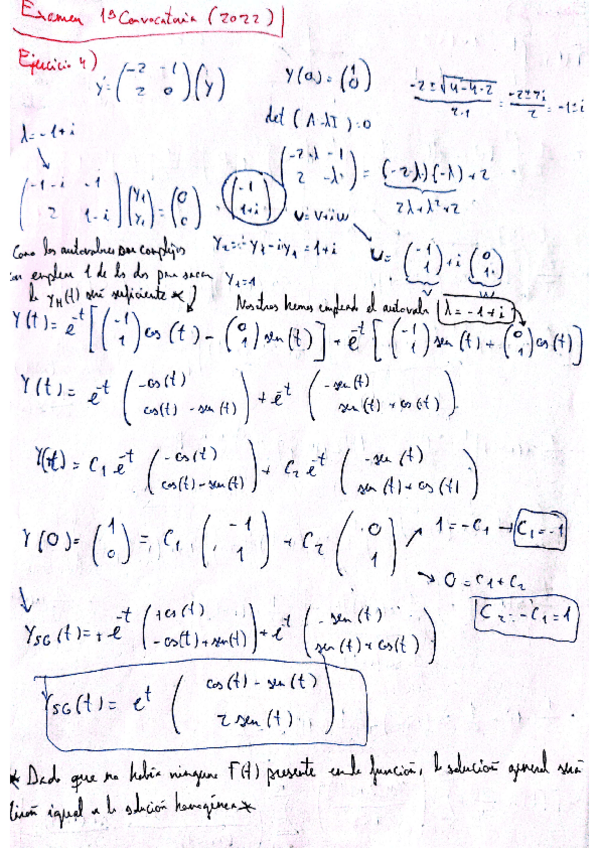 Examen 1ª Convocatoria (2022)
Ejercicio 4)
y' = (-2 -1; 2 0)(y)
y(0) = (1; 0)
-2±√4-4·2 / 2·1 = -2±2i / 2 = -1±i
det (A-λI)=0
λ=-1+i
(-2-λ -1; 2 -λ) = (-2-λ)(-λ)+2
2λ+λ²+2
(-1-i -1; 2 1-i)(y₁; y₂) = (0; 0)
(-1; 1+i)
u=v+iw
u = (-1; 1) + i (0; 1)
v w
Como los autovalores son complejos
emplear 1 de los dos para sacar
la y_H(t) será suficiente *
y₂ = -y₁-iy₁ = 1+i
y₁=-1
Nosotros hemos empleado el autovalor λ=-1+i
Y(t) = e^-t [(-1; 1) cos (t) - (0; 1) sen(t)] + e^-t [(-1; 1) sen (t) + (0; 1) cos(t)]
Y(t) = e^-t (-cos(t); cos(t) - sen(t)) + e^-t (-sen(t); sen(t) + cos(t))
Y(t) = C₁ e^-t (-cos(t); cos(t)-sen(t)) + C₂ e^-t (-sen(t); sen(t)+cos(t))
Y(0) = (1; 0) = C₁ (-1; 1) + C₂ (0; 1)
1=-C₁ → C₁=-1
→ 0=C₁+C₂
C₂=-C₁=1
Y_SG(t) = + e^-t (+cos(t); -cos(t)+sen(t)) + e^-t (-sen(t); sen(t)+cos(t))
Y_SG(t) = e^t (cos(t) - sen(t); 2 sen(t))
* Dado que no había ninguna F(t) presente en la función, la solución general será
igual a la solución homogénea *